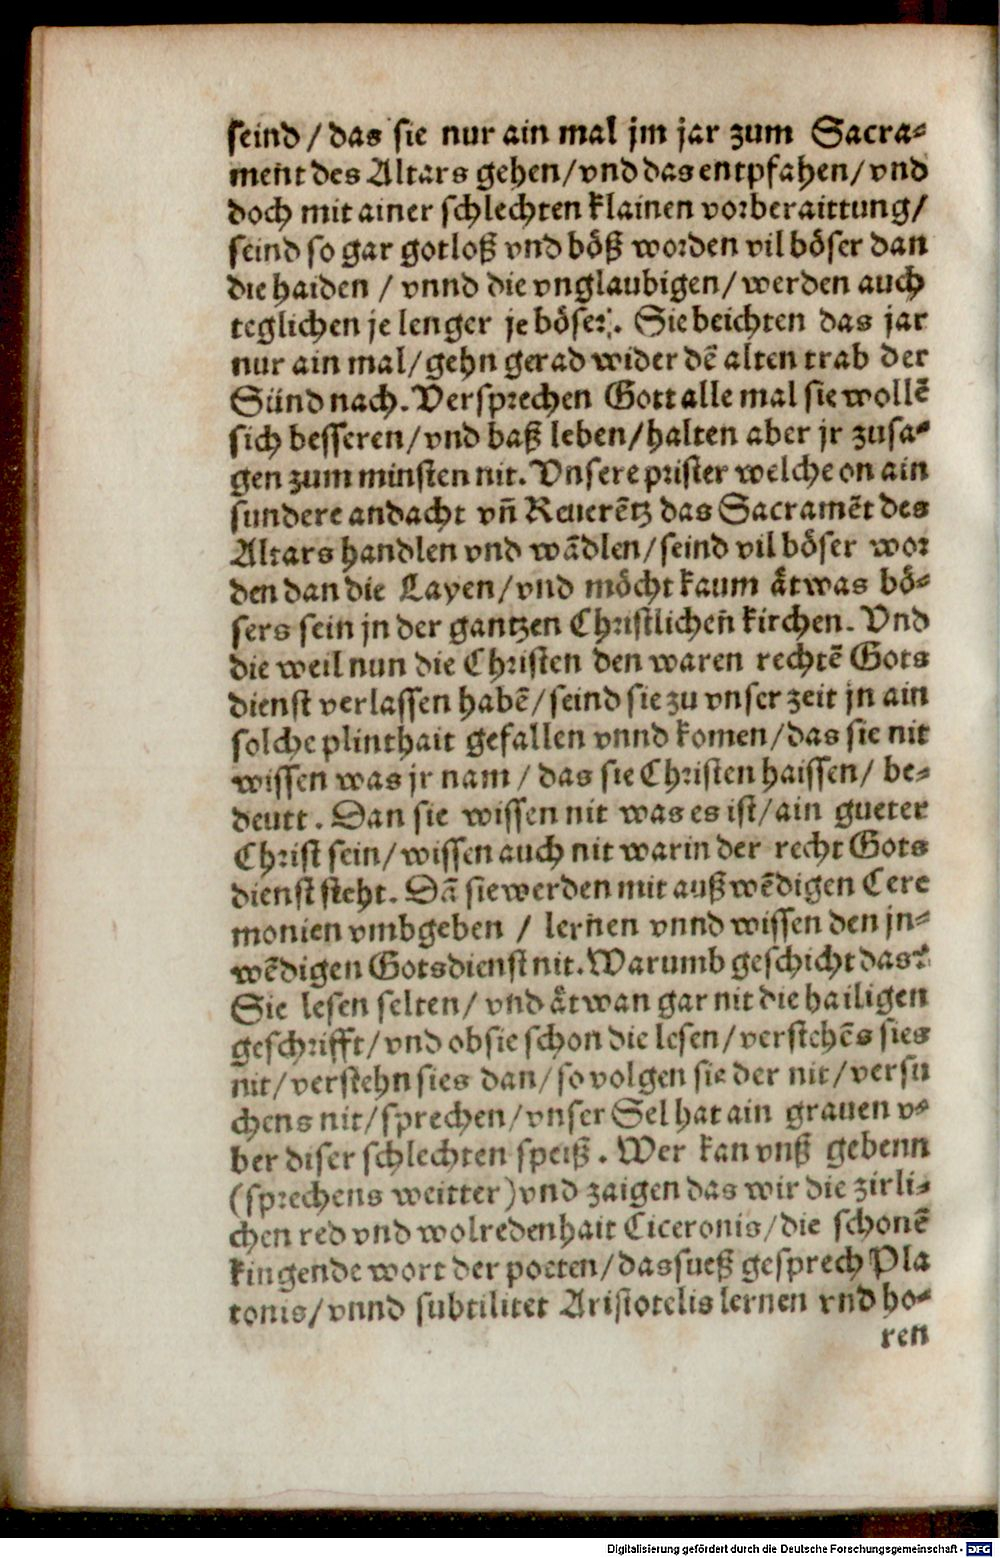 seind / das sie nur ain mal jm jar zum Sacra⸗
ment des Altars gehen / vnd das entpfahen / vnd
doch mit ainer schlechten klainen vorberaittung /
seind so gar gotloß vnd böß worden vil böser dan
die haiden / vnnd die vnglaubigen / werden auch
teglichen je lenger je böser. Sie beichten das jar
nur ain mal / gehn gerad wider dē alten trab der
Sünd nach. Versprechen Gott alle mal sie wollē
sich besseren / vnd baß leben / halten aber jr zusa⸗
gen zum minsten nit. Vnsere prister welche on ain
sundere andacht vñ Reuerētz das Sacramēt des
Altars handlen vnd wādlen / seind vil böser wor
den dan die Layen / vnd möcht kaum åtwas bö⸗
sers sein jn der gantzen Christlicheñ kirchen. Vnd
die weil nun die Christen den waren rechtē Gots
dienst verlassen habē / seind sie zu vnser zeit jn ain
solche plinthait gefallen vnnd komen / das sie nit
wissen was jr nam / das sie Christen haissen / be⸗
deutt. Dan sie wissen nit was es ist / ain gueter
Christ sein / wissen auch nit warin der recht Gots
dienst steht. Dā sie werden mit außwēdigen Cere
monien vmbgeben / lernen vnnd wissen den jn⸗
wēdigen Gotsdienst nit. Warumb geschicht das?
Sie lesen selten / vnd åtwan gar nit die hailigen
geschrifft / vnd ob sie schon die lesen / verstehēs sies
nit / verstehn sies dan / so volgen sie der nit / versu
chens nit / sprechen / vnser Sel hat ain grauen v⸗
ber diser schlechten speiß. Wer kan vnß gebenn
(sprechens weitter) vnd zaigen das wir die zirli⸗
chen red vnd wolredenhait Ciceronis / die schonē
kingende wort der poeten / das sueß gesprech Pla
tonis / vnnd subtilitet Aristotelis lernen vnd ho⸗
ren
Digitalisierung gefördert durch die Deutsche Forschungsgemeinschaft - DFG